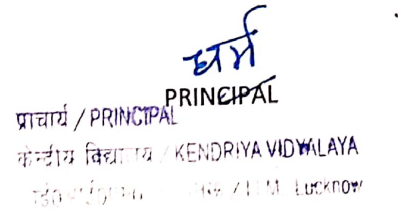 धर्म
PRINCIPAL
प्राचार्य / PRINCIPAL
केन्द्रीय विद्यालय / KENDRIYA VIDYALAYA
/ I.I.M. Lucknow